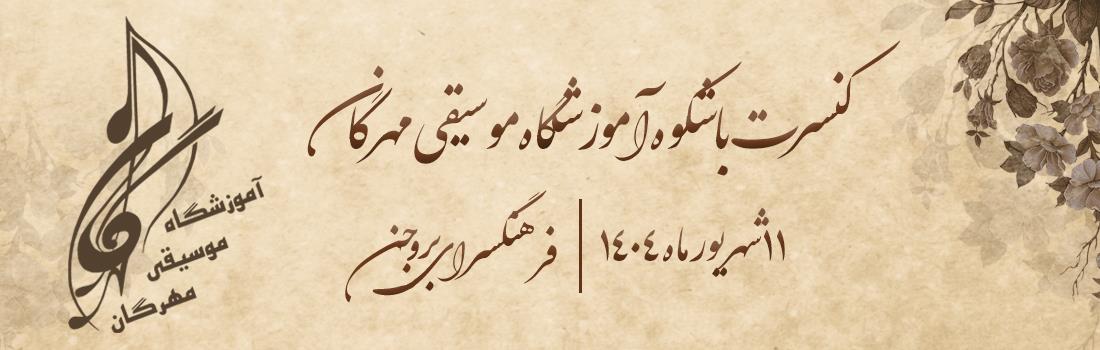 کنسرت باشکوه آموزشگاه موسیقی مهرگان
۱۱ شهریور ماه ۱٤۰٤ | فرهنگسرای بروجن
آموزشگاه
موسیقی
مهرگان